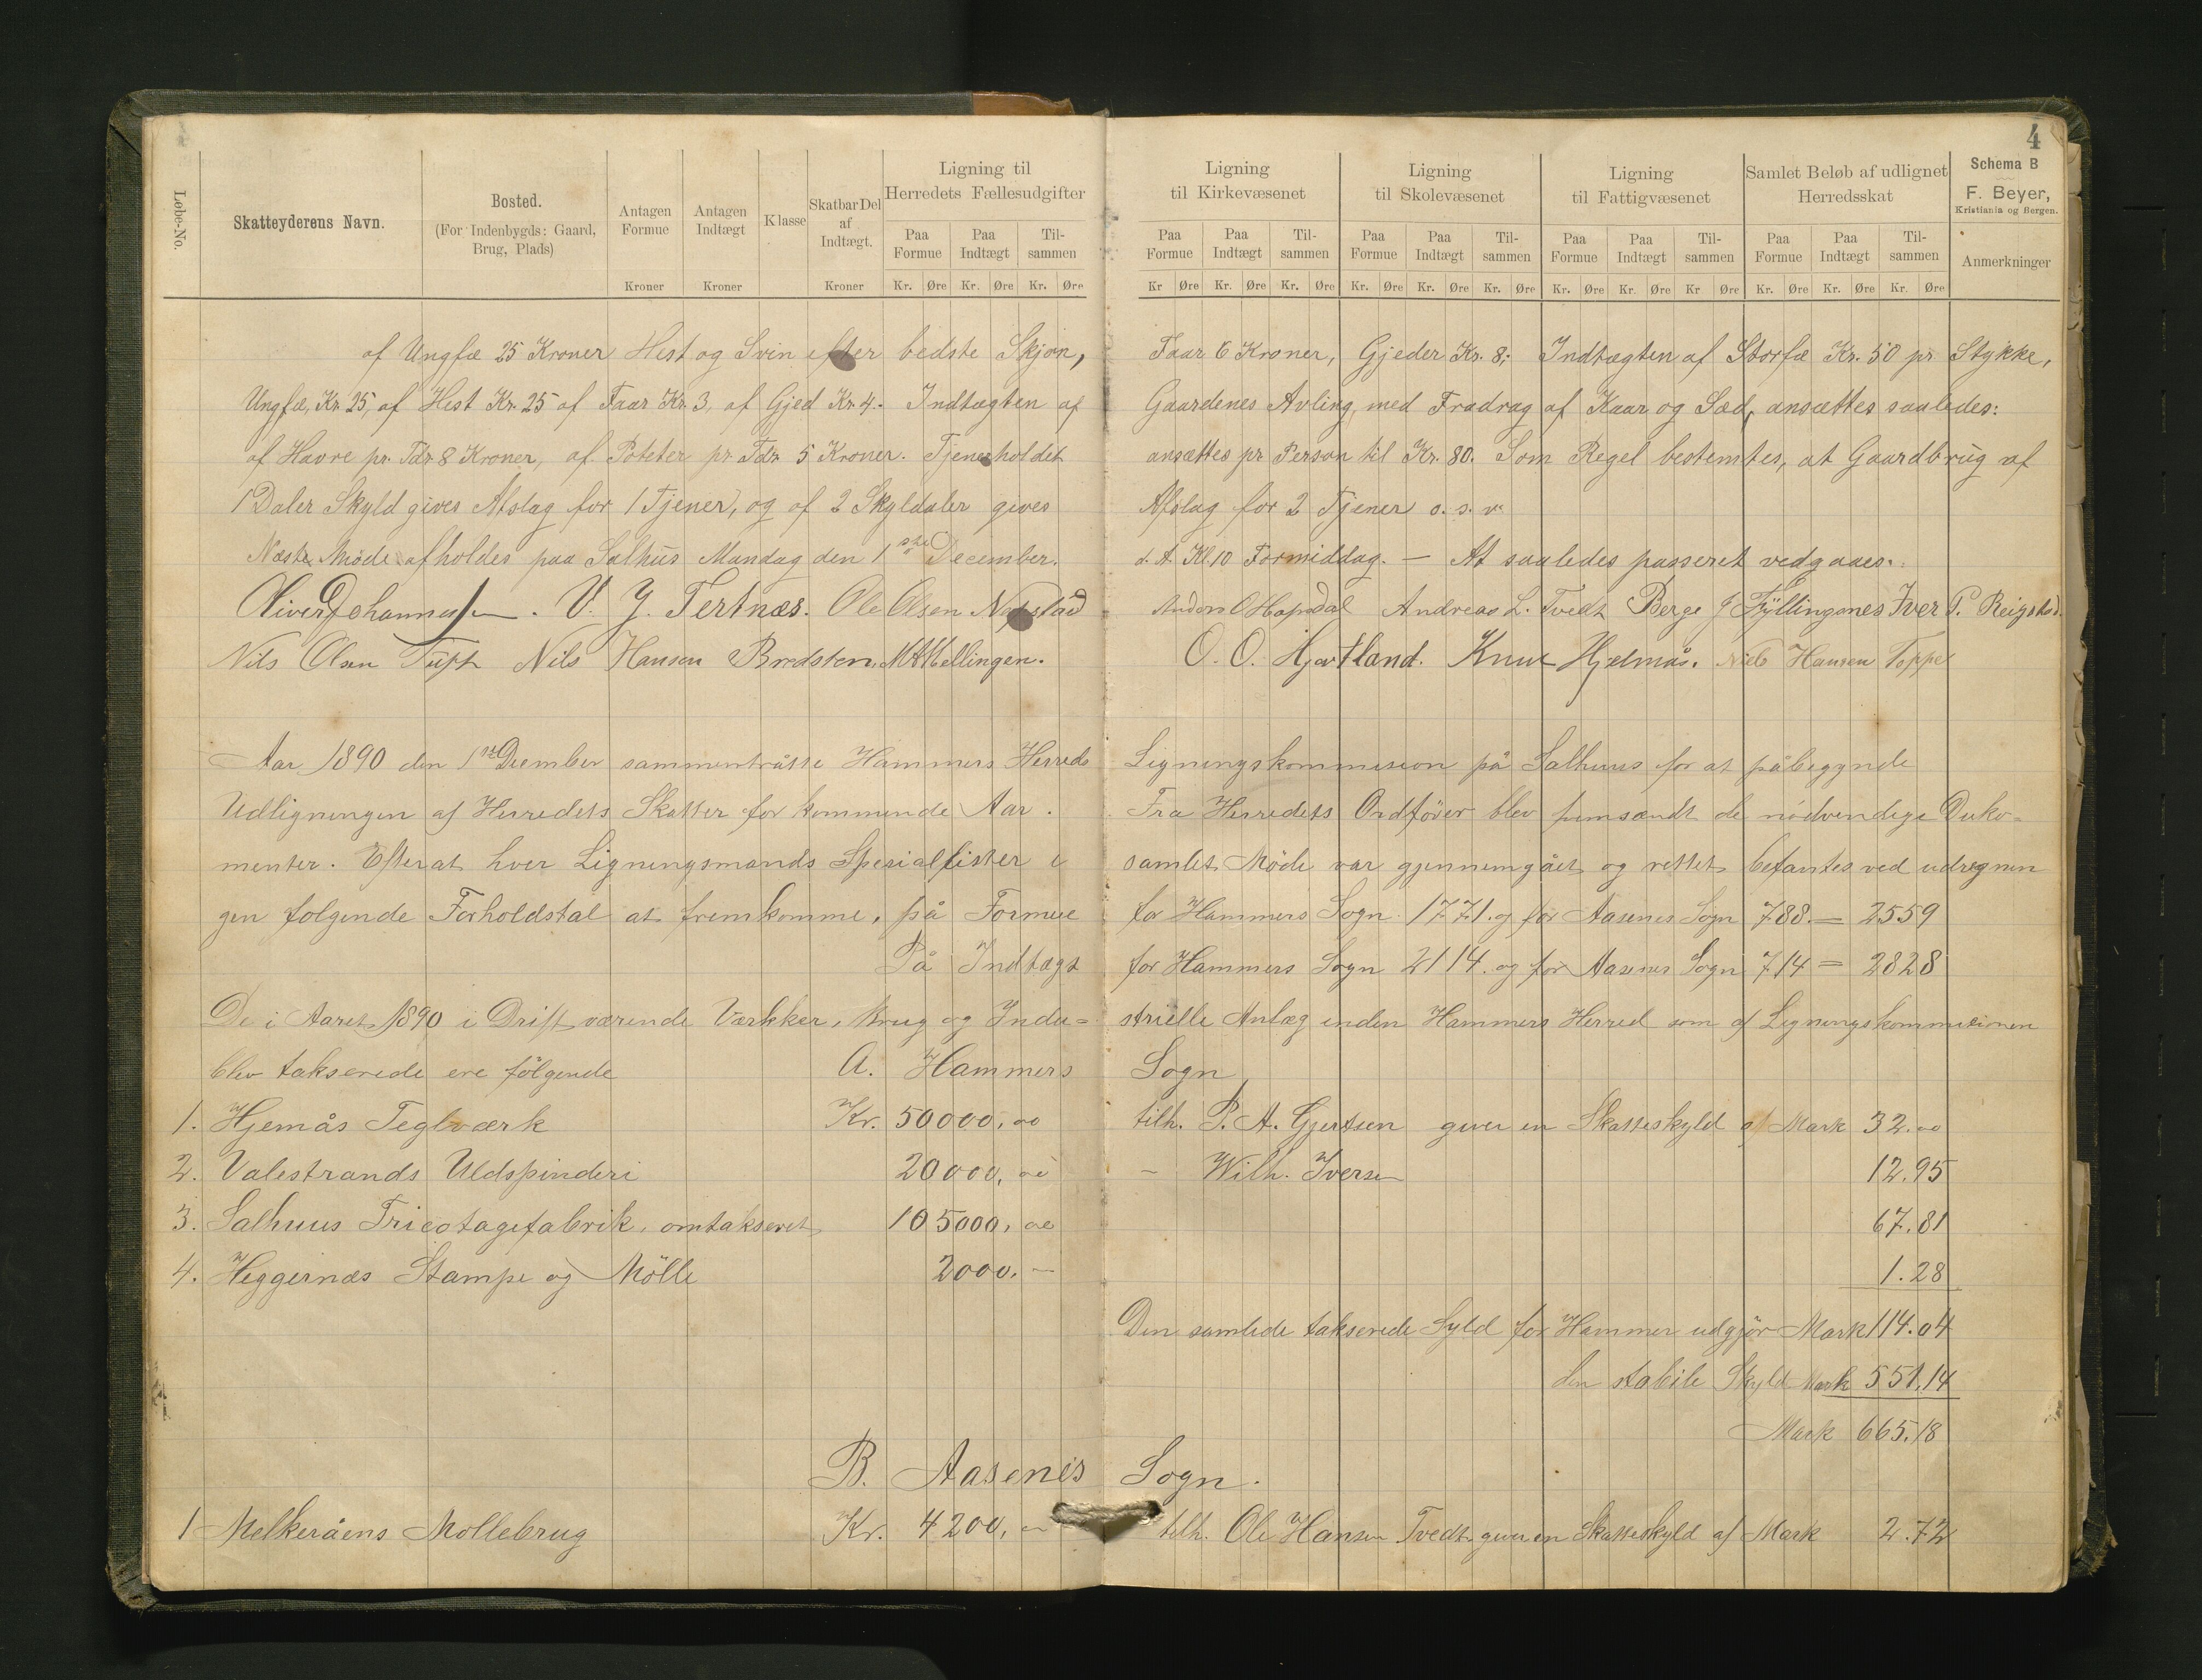 4
Løbe-No.
Skatteyderens Navn.
Bosted.
(For Indenbygds: Gaard,
Brug, Plads)
Antagen
Formue
Kroner
Antagen
Indtægt
Kroner
Klasse
Skatbar Del
af
Indtægt.
Kroner
Ligning til
Herredets Fællesudgifter
Paa Formue Paa Indtægt Til-sammen
Kr. Øre Kr. Øre Kr. Øre
Ligning
til Kirkevæsenet
Paa Formue Paa Indtægt Til-sammen
Kr Øre Kr. Øre Kr. Øre
Ligning
til Skolevæsenet
Paa Formue Paa Indtægt Til-sammen
Kr. Øre Kr. Øre Kr. Øre
Ligning
til Fattigvæsenet
Paa Formue Paa Indtægt Til-sammen
Kr. Øre Kr. Øre Kr Øre
Samlet Beløb af udlignet
Herredsskat
Paa Formue Paa Indtægt Til-sammen
Kr. Øre Kr. Øre Kr. Øre
Schema B
F. Beyer,
Kristiania og Bergen.
Anmerkninger
af Ungfæ 25 Kroner Hest og Svin efter bedste Skjøn, Faar 6 Kroner, Gjeder Kr. 8; Indtægten af Storfæ Kr. 50 pr Stykke,
Ungfæ, Kr. 25, af Hest Kr. 25 af Faar Kr. 3, af Gjed Kr. 4. Indtægten af Gaardenes Avling, med Fradrag af Kaar og Sæd, ansættes saaledes:
af Havre pr. Tdr 8 Kroner, af Poteter pr Tdr 5 Kroner. Tjenerholdet ansættes pr Person til Kr. 80. Som Regel bestemtes, at Gaardbrug af
1 Daler Skyld gives Afslag for 1 Tjener, og af 2 Skyldaler gives Afslag for 2 Tjener o. s. v.
Næste Møde afholdes paa Salhus Mandag den 1ste December. d. A. Kl. 10 Formiddag. — At saaledes passeret vedgaaes.
Oliver Johannessen. V. J. Tertnæs. Ole Olsen Anders O Hopsdal Andreas L. Tvedt Berge J Fyllingsnes Iver P. Reigstad.
Nils Olsen Tuft Nils Hansen Bredsten. M K Mellingen. O. O. Hjortland. Knut Hjelmås. Nils Hansen Toppe
Aar 1890 den 1ste December sammentråtte Hammers Herreds Ligningskommision på Salhuus for at påbegynde
Udligningen af Herredets Skatter for kommende Aar. Fra Herredets Ordfører blev fremsændt de nødvendige Doko-
menter. Efterat hver Ligningsmands Spesiallister i samlet Møde var gjennemgået og rettet befantes ved udregnin
gen folgende Forholdstal at fremkomme, på Formue for Hammers Sogn 1771. og for Aasenes Sogn 788. = 2559
På Indtægt for Hammers Sogn 2114. og for Aasenes Sogn 714 = 2828
De i Aaret 1890 i Drift værende Værkker, Brug og Indu= strielle Anlæg inden Hammers Herred som af Ligningskommisionen
blev takserede ere følgende A. Hammers Sogn
1. Hjemås Teglværk Kr. 50000,00 tilh. P. A. Gjertsen giver en Skatteskyld af Mark 32.00
2. Valestrands Uldspinderi 20000,00 - Wilh. Iversen 12.95
3. Salhuus Tricotagefabrik, omtakseret 105000,00 67.81
4. Heggernæs Stampe og Mølle 2000.— 1.28
Den samlede takserede Syld for Hammer udgjør Mark 114.04
den stabile Skyld Mark 551.14
Mark 665.18
B. Aasenes Sogn.
1 Melkeråens Mollebrug Kr. 4200,— tilh. Ole Hansen Tvedt giver en Skatteskyld af Mark 2.72